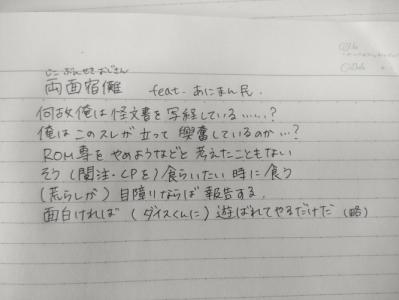 じこ ぶんせき おじさん
両面宿儺 feat. あにまん民.
何故俺は怪文書を写経している……?
俺はこのスレが立って興奮しているのか…?
ROM専をやめようなどと考えたこともない
そう(関注・CPを)食らいたい時に食う
(荒らしが)目障りならば報告する.
面白ければ(ダイスくんに)遊ばれてやるだけだ(略)